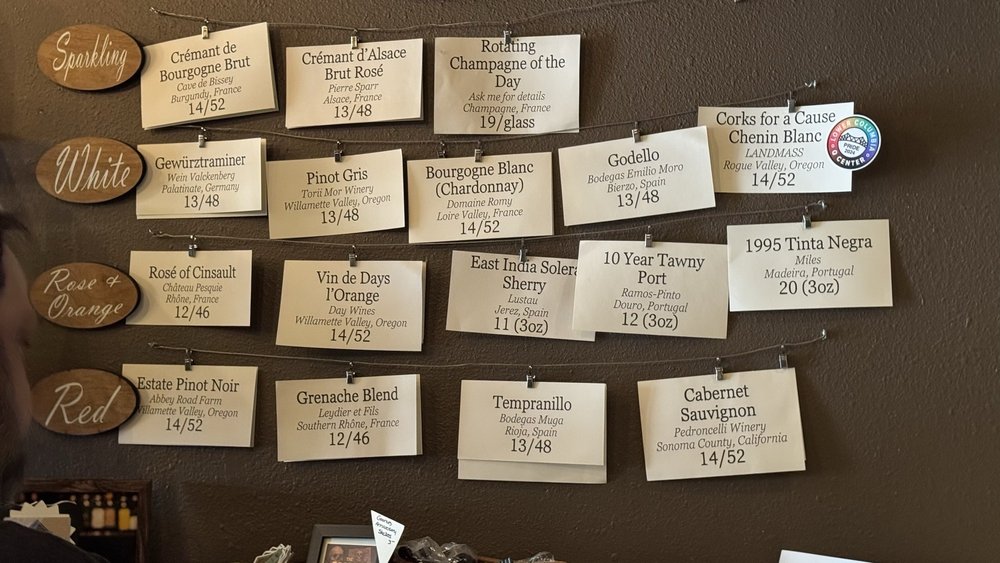 Sparkling
Crémant de
Bourgogne Brut
Cave de Bissey
Burgundy, France
14/52
Crémant d'Alsace
Brut Rosé
Pierre Sparr
Alsace, France
13/48
Rotating
Champagne of the
Day
Ask me for details
Champagne, France
19/glass
White
Gewürztraminer
Wein Valckenberg
Palatinate, Germany
13/48
Pinot Gris
Torii Mor Winery
Willamette Valley, Oregon
13/48
Bourgogne Blanc
(Chardonnay)
Domaine Romy
Loire Valley, France
14/52
Godello
Bodegas Emilio Moro
Bierzo, Spain
13/48
Corks for a Cause
Chenin Blanc
LANDMASS
Rogue Valley, Oregon
14/52
LOWER COLUMBIA
Q CENTER
PRIDE
Rose &
Orange
Rosé of Cinsault
Château Pesquie
Rhône, France
12/46
Vin de Days
l'Orange
Day Wines
Willamette Valley, Oregon
14/52
East India Solera
Sherry
Lustau
Jerez, Spain
11 (3oz)
10 Year Tawny
Port
Ramos-Pinto
Douro, Portugal
12 (3oz)
1995 Tinta Negra
Miles
Madeira, Portugal
20 (3oz)
Red
Estate Pinot Noir
Abbey Road Farm
Willamette Valley, Oregon
14/52
Grenache Blend
Leydier et Fils
Southern Rhône, France
12/46
Tempranillo
Bodegas Muga
Rioja, Spain
13/48
Cabernet
Sauvignon
Pedroncelli Winery
Sonoma County, California
14/52